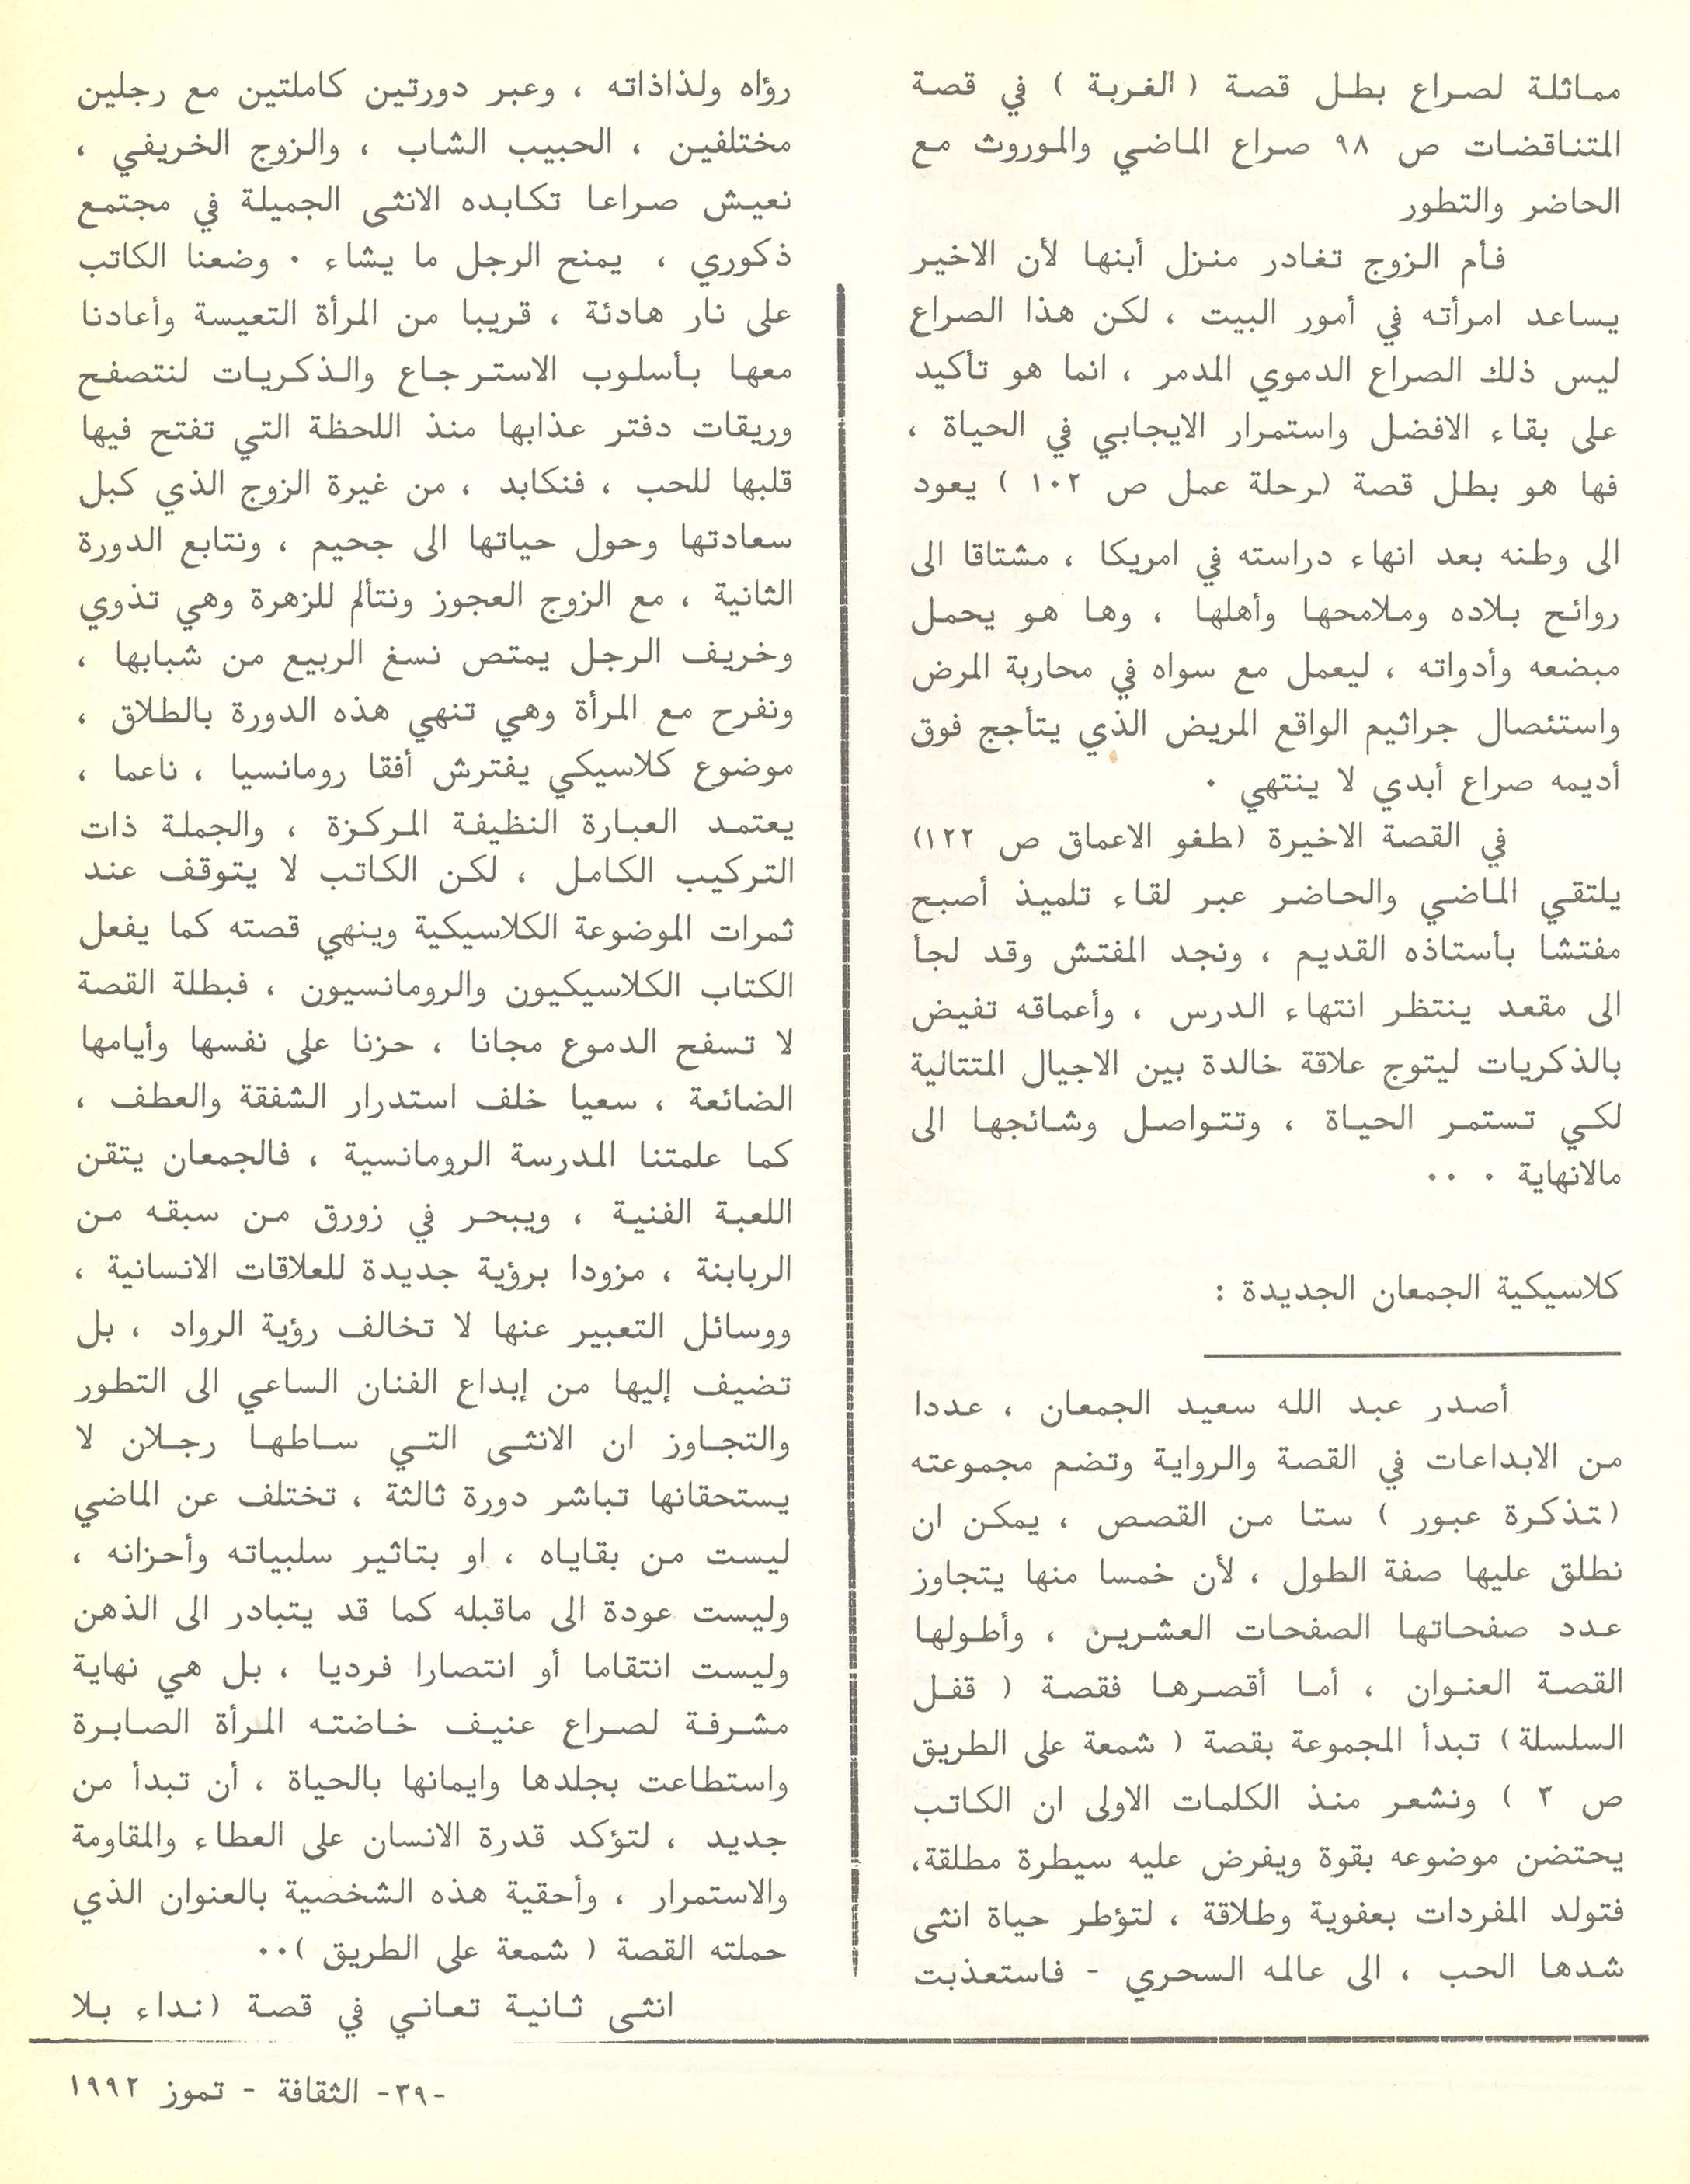 مماثلة لصراع بطل قصة ( الغربة ) في قصة
المتناقضات ص ٩٨ صراع الماضي والموروث مع
الحاضر والتطور
فأم الزوج تغادر منزل أبنها لأن الاخير
يساعد امرأته في أمور البيت ، لكن هذا الصراع
ليس ذلك الصراع الدموي المدمر ، انما هو تأكيد
على بقاء الافضل واستمرار الايجابي في الحياة ،
فها هو بطل قصة (رحلة عمل ص ١٠٢ ) يعود
الى وطنه بعد انهاء دراسته في امريكا ، مشتاقا الى
روائح بلاده وملامحها وأهلها ، وها هو يحمل
مبضعه وأدواته ، ليعمل مع سواه في محاربة المرض
واستئصال جراثيم الواقع المريض الذي يتأجج فوق
أديمه صراع أبدي لا ينتهي ٠
في القصة الاخيرة (طغو الاعماق ص ١٢٢)
يلتقي الماضي والحاضر عبر لقاء تلميذ أصبح
مفتشا بأستاذه القديم ، ونجد المفتش وقد لجأ
الى مقعد ينتظر انتهاء الدرس ، وأعماقه تفيض
بالذكريات ليتوج علاقة خالدة بين الاجيال المتتالية
لكي تستمر الحياة ، وتتواصل وشائجها الى
مالانهاية ٠ ٠٠
كلاسيكية الجمعان الجديدة :
أصدر عبد الله سعيد الجمعان ، عددا
من الابداعات في القصة والرواية وتضم مجموعته
(تذكرة عبور ) ستا من القصص ، يمكن ان
نطلق عليها صفة الطول ، لأن خمسا منها يتجاوز
عدد صفحاتها الصفحات العشرين ، وأطولها
القصة العنوان ، أما أقصرها فقصة ( قفل
السلسلة) تبدأ المجموعة بقصة ( شمعة على الطريق
ص ٣ ) ونشعر منذ الكلمات الاولى ان الكاتب
يحتضن موضوعه بقوة ويفرض عليه سيطرة مطلقة،
فتولد المفردات بعفوية وطلاقة ، لتؤطر حياة انثى
شدها الحب ، الى عالمه السحري - فاستعذبت
رؤاه ولذاذاته ، وعبر دورتين كاملتين مع رجلين
مختلفين ، الحبيب الشاب ، والزوج الخريفي ،
نعيش صراعا تكابده الانثى الجميلة في مجتمع
ذكوري ، يمنح الرجل ما يشاء ٠ وضعنا الكاتب
على نار هادئة ، قريبا من المرأة التعيسة وأعادنا
معها بأسلوب الاسترجاع والذكريات لنتصفح
وريقات دفتر عذابها منذ اللحظة التي تفتح فيها
قلبها للحب ، فنكابد ، من غيرة الزوج الذي كبل
سعادتها وحول حياتها الى جحيم ، ونتابع الدورة
الثانية ، مع الزوج العجوز ونتألم للزهرة وهي تذوي
وخريف الرجل يمتص نسغ الربيع من شبابها ،
ونفرح مع المرأة وهي تنهي هذه الدورة بالطلاق ،
موضوع كلاسيكي يفترش أفقا رومانسيا ، ناعما ،
يعتمد العبارة النظيفة المركزة ، والجملة ذات
التركيب الكامل ، لكن الكاتب لا يتوقف عند
ثمرات الموضوعة الكلاسيكية وينهي قصته كما يفعل
الكتاب الكلاسيكيون والرومانسيون ، فبطلة القصة
لا تسفح الدموع مجانا ، حزنا على نفسها وأيامها
الضائعة ، سعيا خلف استدرار الشفقة والعطف ،
كما علمتنا المدرسة الرومانسية ، فالجمعان يتقن
اللعبة الفنية ، ويبحر في زورق من سبقه من
الربابنة ، مزودا برؤية جديدة للعلاقات الانسانية ،
ووسائل التعبير عنها لا تخالف رؤية الرواد ، بل
تضيف إليها من إبداع الفنان الساعي الى التطور
والتجاوز ان الانثى التي ساطها رجلان لا
يستحقانها تباشر دورة ثالثة ، تختلف عن الماضي
ليست من بقاياه ، او بتاثير سلبياته وأحزانه ،
وليست عودة الى ماقبله كما قد يتبادر الى الذهن
وليست انتقاما أو انتصارا فرديا ، بل هي نهاية
مشرفة لصراع عنيف خاضته المرأة الصابرة
واستطاعت بجلدها وايمانها بالحياة ، أن تبدأ من
جديد ، لتؤكد قدرة الانسان على العطاء والمقاومة
والاستمرار ، وأحقية هذه الشخصية بالعنوان الذي
حملته القصة ( شمعة على الطريق )٠٠
انثى ثانية تعاني في قصة (نداء بلا
-٣٩- الثقافة - تموز ١٩٩٢